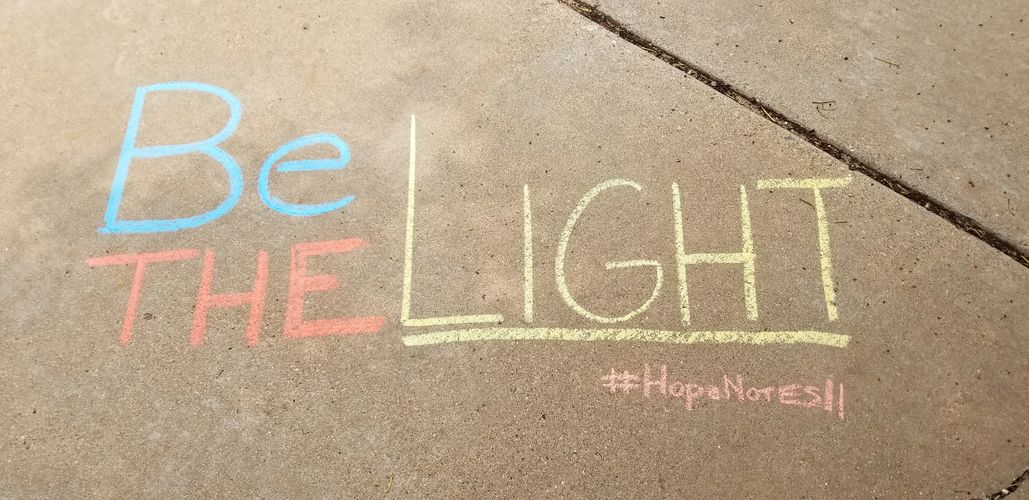 Be
THE LIGHT
#HopeNotES11